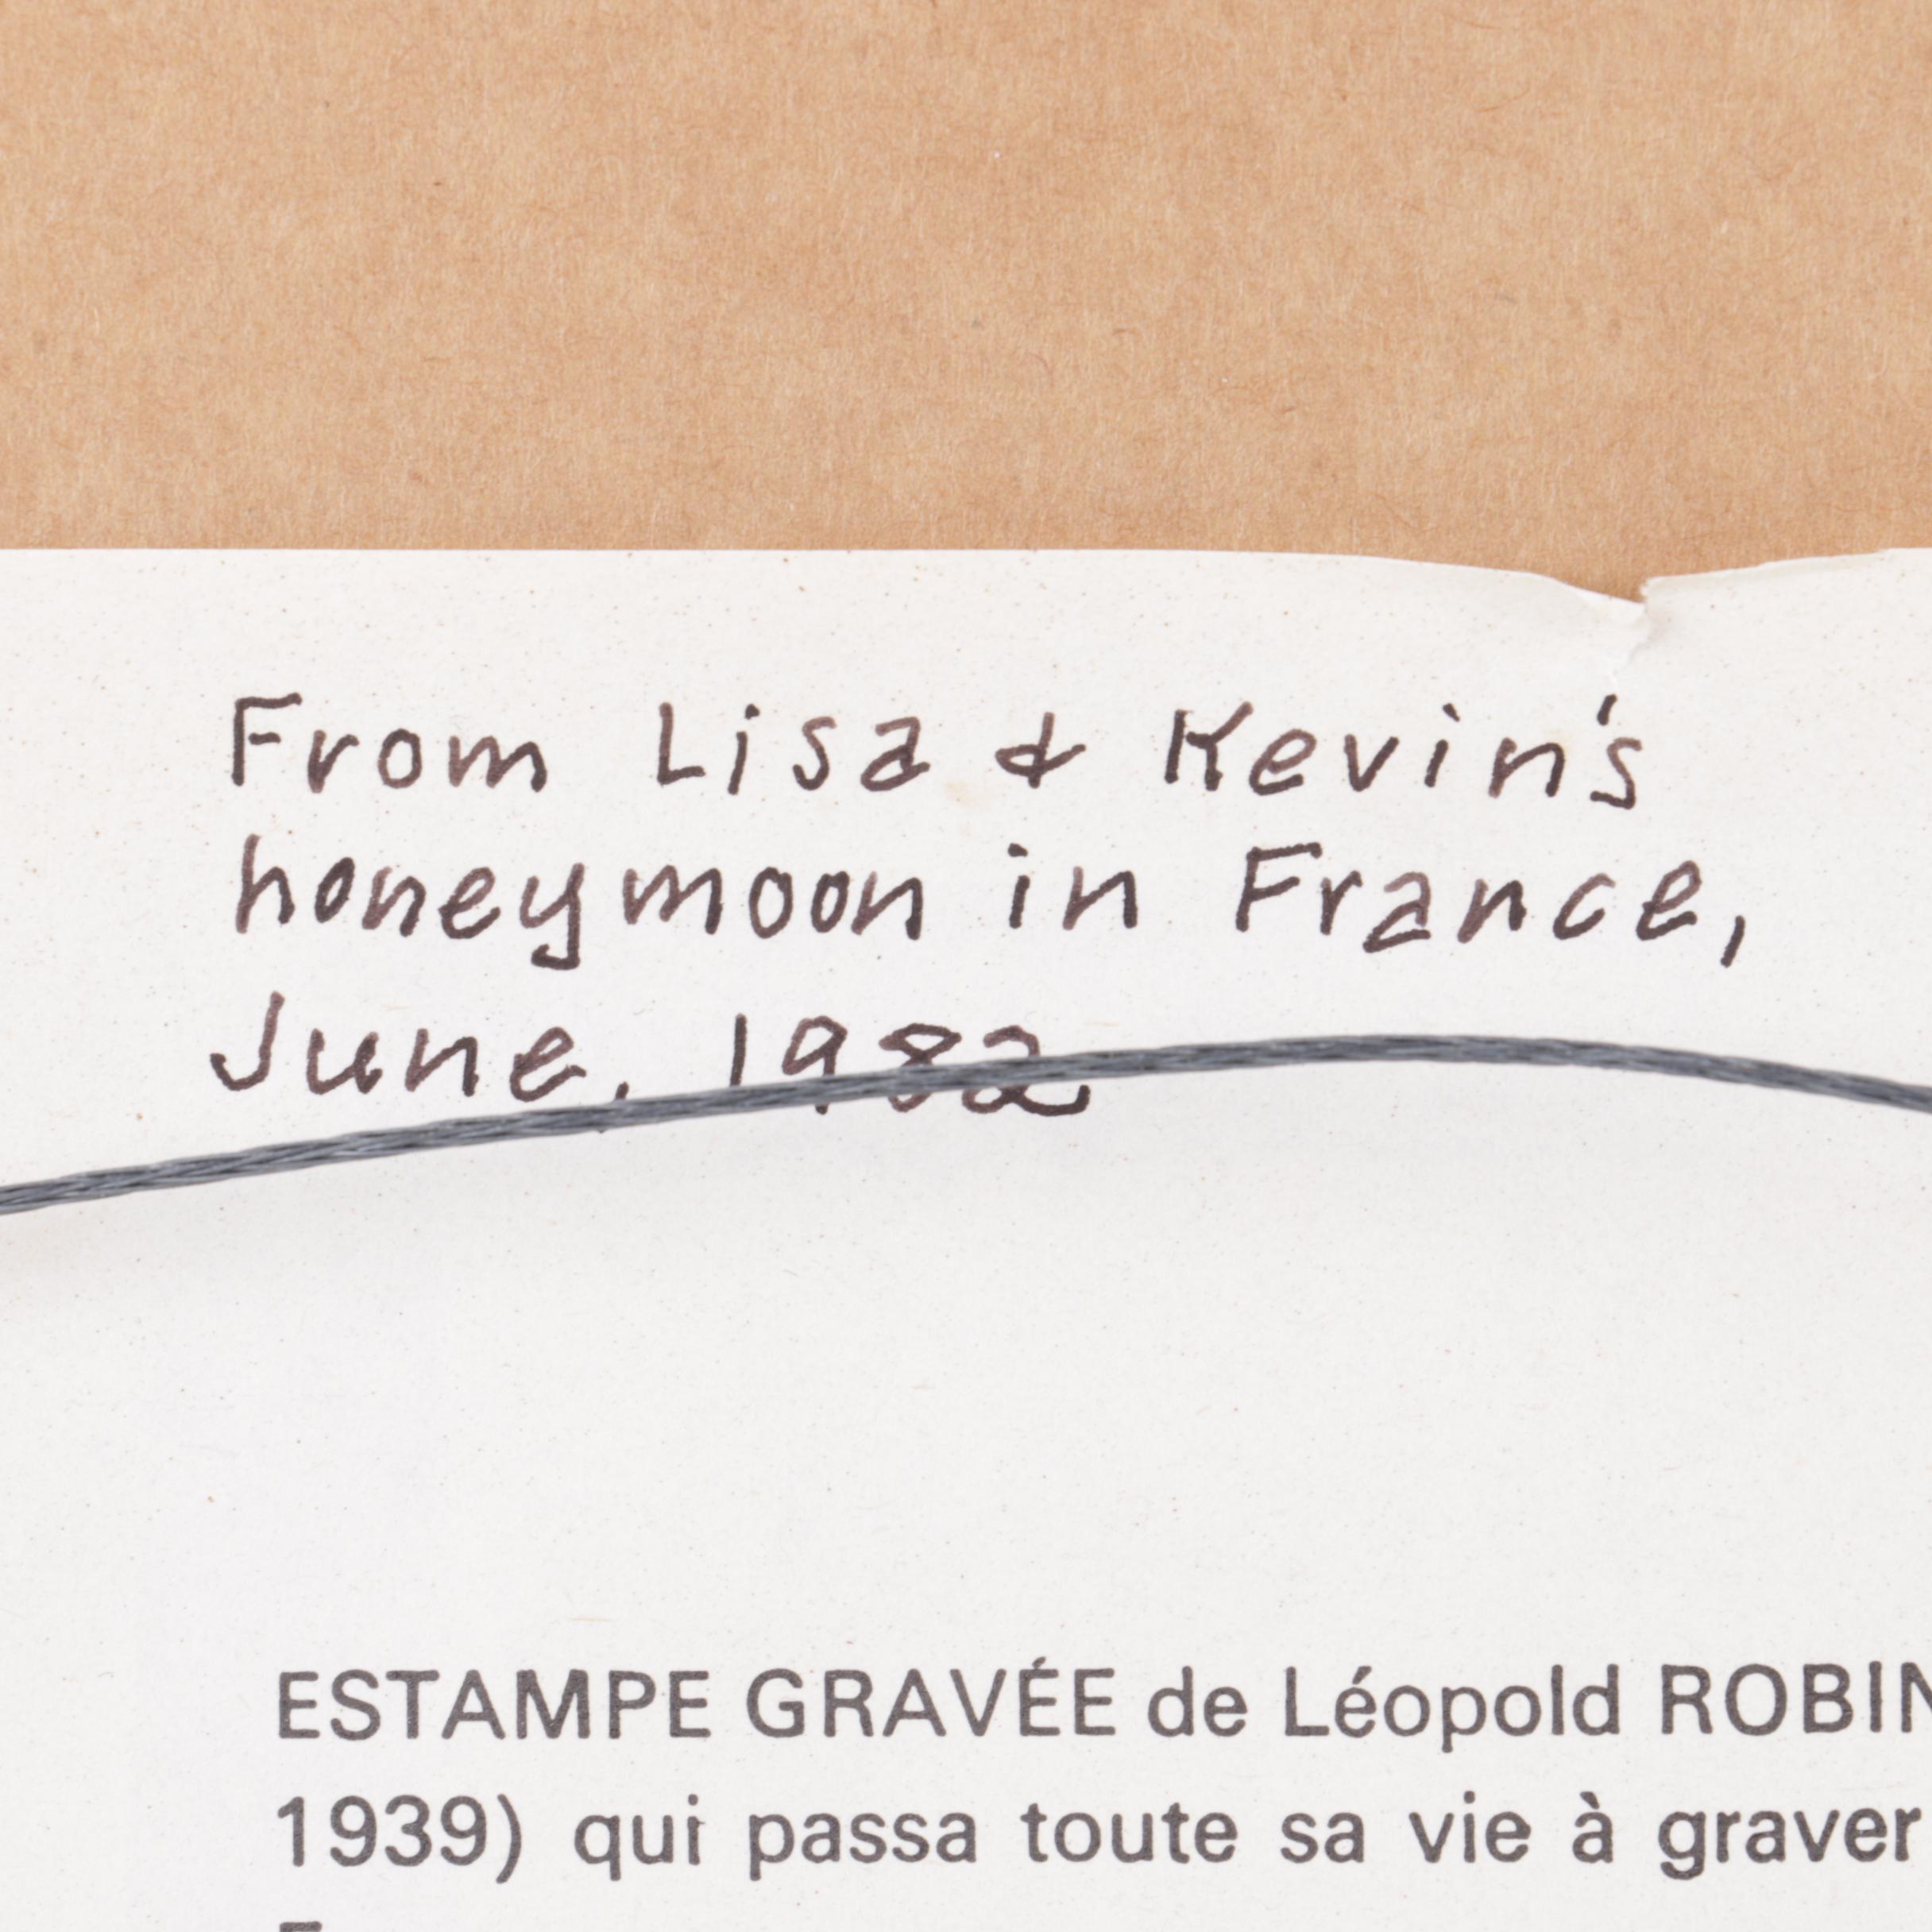 From Lisa & Kevin's
honeymoon in France,
June, 1982
ESTAMPE GRAVÉE de Léopold ROBIN
1939) qui passa toute sa vie à graver